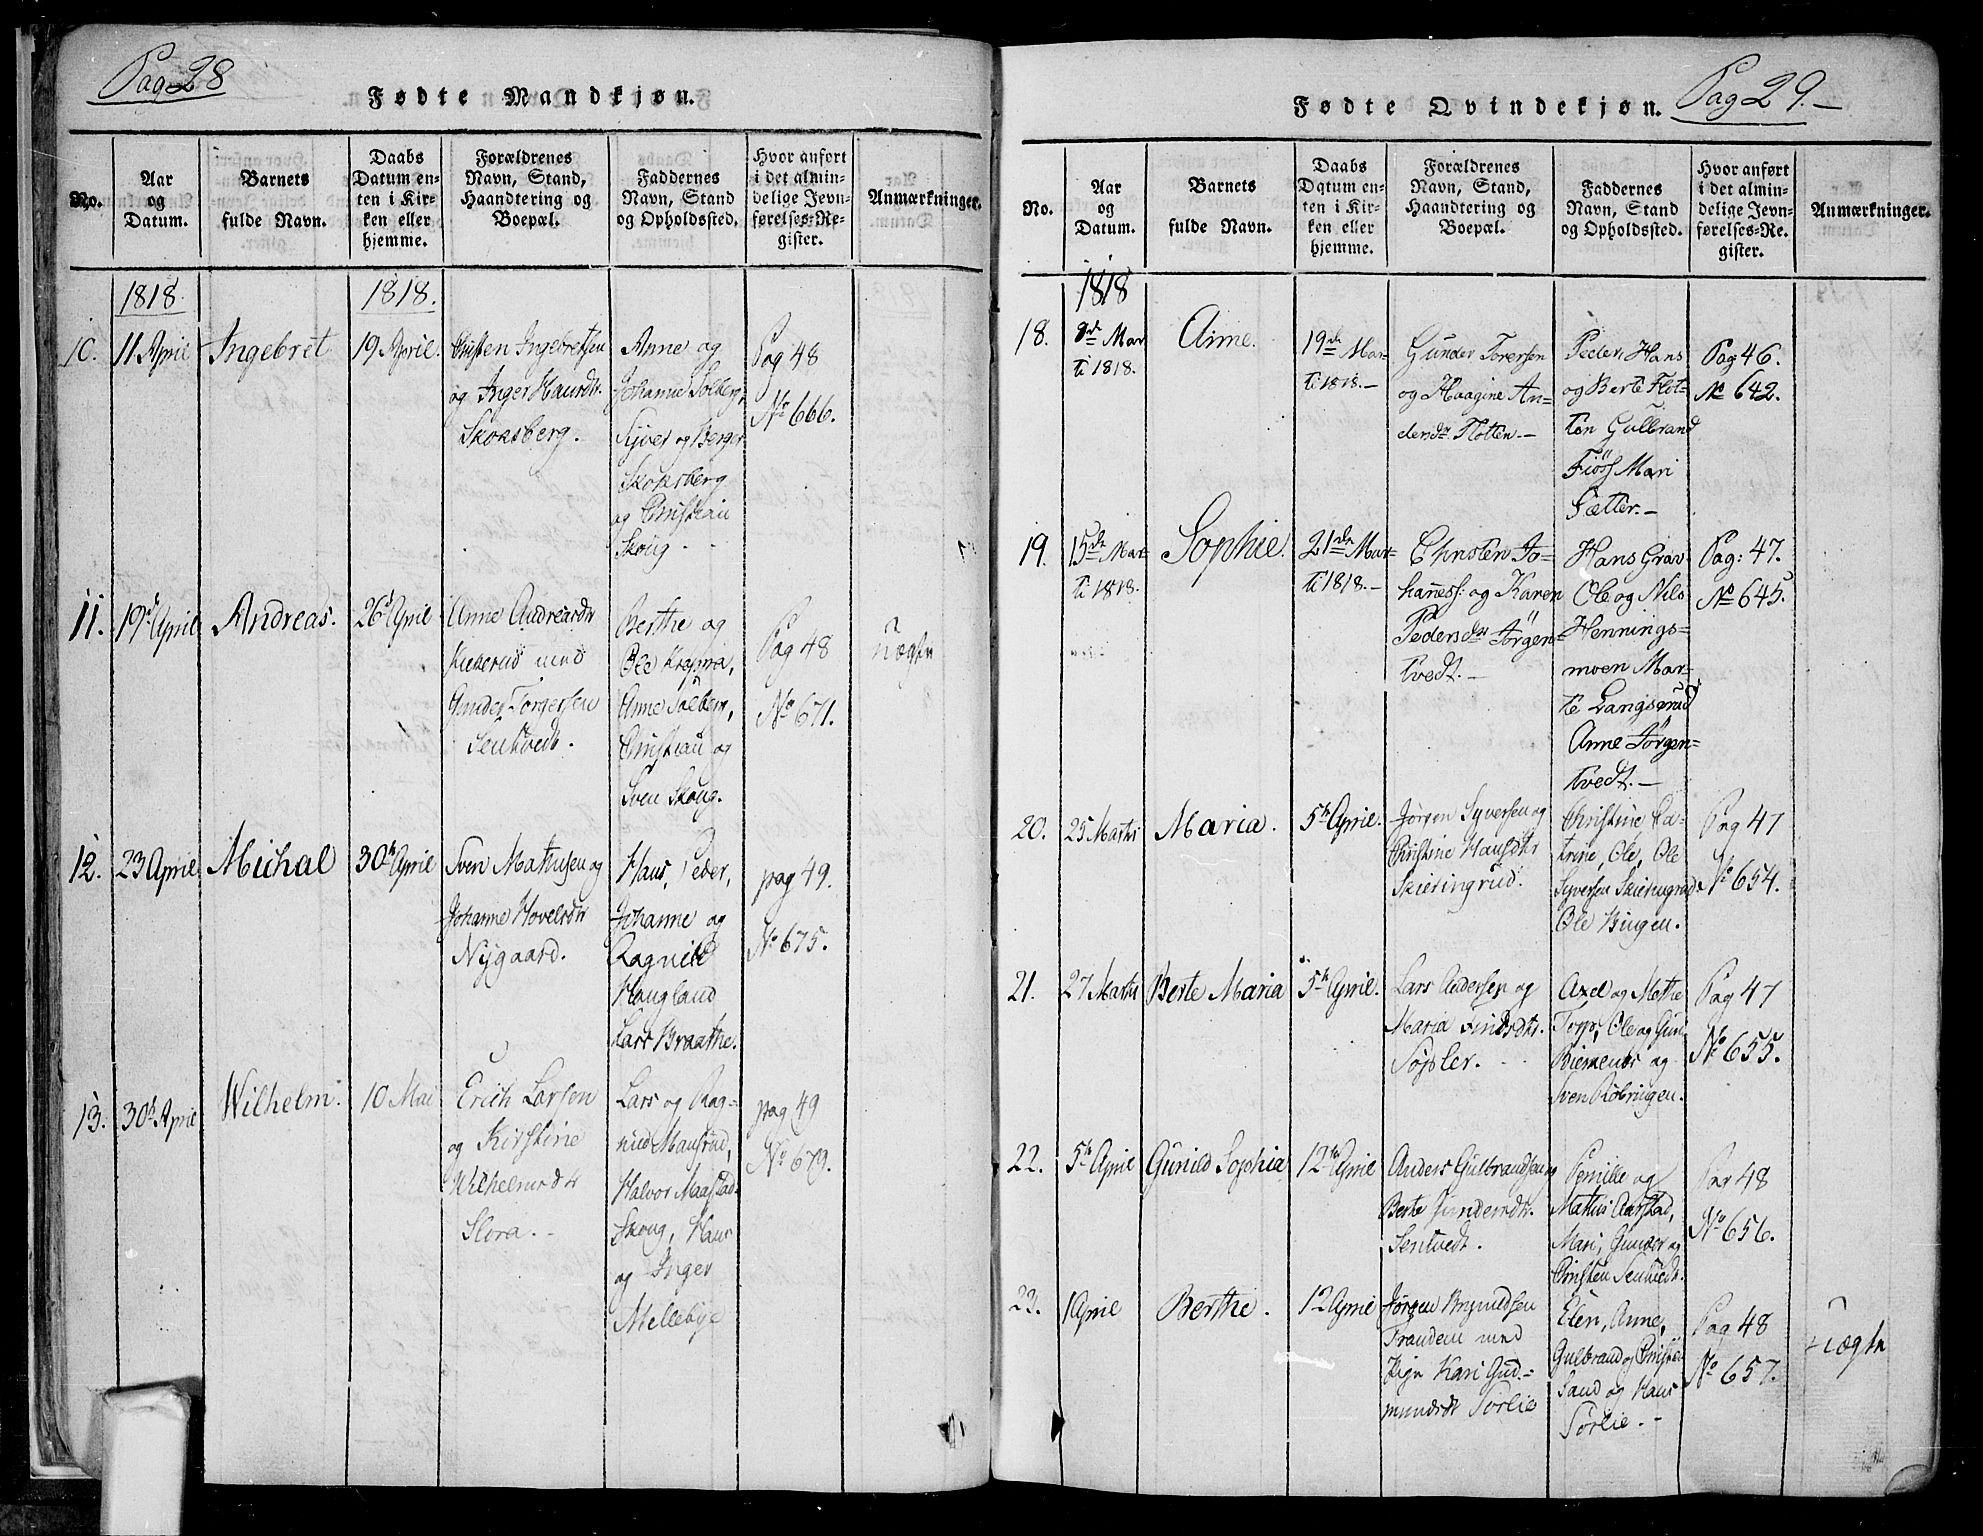 Pag 28
Fødte Mandkjøn.
No.
Aar
og
Datum.
Barnets
fulde Navn.
Daabs
Datum en-
ten i Kir-
ken eller
hjemme.
Forældrenes
Navn, Stand,
Haandtering og
Boepæl.
Faddernes
Navn, Stand
og Opholdssted.
Hvor anført
i det almin-
delige Jevn-
førelses-Re-
gister.
Anmærkninger.
1818.
1818.
10.
11 April
Ingebret
19 April.
Christen Ingebretsen
og Inger Hansdr.
Skoksberg.
Anne og
Johanne Solberg,
Syver og Berger
Skoksberg
og Christian
Skoug.
Pag 48
No 666.
11.
19d April
Andreas.
26d April
Anne Andreasdr
med
Gunder Torgersen
Sentvedt.
Berthe og
Ole
Anne Solberg,
Christian og
Sven Skoug.
Pag 48
No 671.
uægte
12.
23 April
Michal
30te April
Sven Mathisen og
Johanne Hovelsdr
Nygaard.
Hans, Peder,
Johanne og
Ragnild
Haugland
Lars Braathe.
pag 49.
No 675.
13.
30te April
Wilhelm.
10 Mai
Erich Larsen
og Kirstine
Wilhelmsdr
Slora.
Lars og Rag-
nild
Halvor
Skoug, Hans
og Inger
Mellebye
pag 49
No 679.
Pag 29.
Fødte Qvindekjøn.
No.
Aar
og
Datum.
Barnets
fulde Navn.
Daabs
Datum en-
ten i Kir-
ken eller
hjemme.
Forældrenes
Navn, Stand,
Haandtering og
Boepæl.
Faddernes
Navn, Stand
og Opholdssted.
Hvor anført
i det almin-
delige Jevn-
førelses-Re-
gister.
Anmærkninger.
1818
18.
8de Mar
ti 1818.
Anne.
19de Mar-
ti 1818.
Gunder Torersen
og Haagine An-
dersdr Flotten.
Peder, Hans
og Berte Flot-
ten Gulbrand
Fiøss Mari
Sætter.
Pag 46.
No 642.
19.
15de Mar-
ti 1818.
Sophie.
21de Mar-
ti 1818.
Christen Jo-
haness: og Karen
Pedersdr Jørgen-
tvedt.
Hans Grav
Ole og Nils
Hennings-
moen Mar-
te Langsrud
Anne Jørgen-
tvedt.
Pag: 47.
No 645.
20.
25 Marti
Maria.
5te April.
Jørgen Syversen og
Christine Hansdtr
Skieringrud.
Christine Ca-
trine, Ole, Ole
Syversen Skieringrud
Ole Bingen.
Pag 47
No 654.
21.
27 Marti
Berte Maria
5te April.
Lars Andersen og
Maria Findsdtr.
Søpler.
Axel og Mette
Topp, Ole og Guri
og
Sven Robringen.
Pag 47
No 655.
22.
5te April
Gunild Sophia
12te April
Anders Gulbrandsen
Berte Gundersdtr.
Sentvedt.
Pernille og
Mathis Aarstad,
Mari, Gunder og
Christen Sentvedt.
Pag 48
No 656.
23.
1 April
Berthe.
12 April
Jørgen Brynildsen
Trandem med
Pige Kari Gud-
mundsdr Sørlie
Elen, Anne,
Gulbrand og Christen
Sand og Hans
Sørlie.
Pag 48
No 657.
uægte